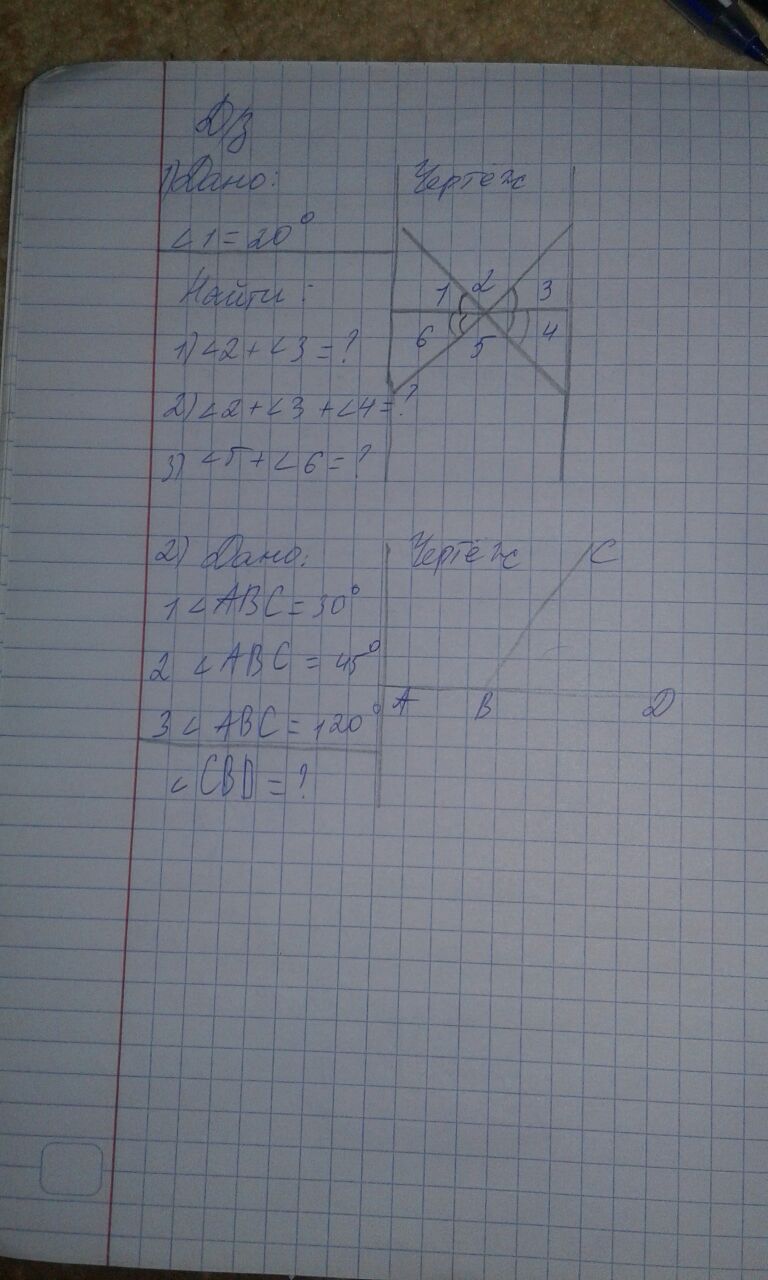 Д/з
1) Дано:
∠1 = 20°
Найти:
1) ∠2 + ∠3 = ?
2) ∠2 + ∠3 + ∠4 = ?
3) ∠5 + ∠6 = ?
Чертёж
1 2 3
6 5 4
2) Дано:
1 ∠ABC = 30°
2 ∠ABC = 45°
3 ∠ABC = 120°
∠CBD = ?
Чертёж
C
A B D